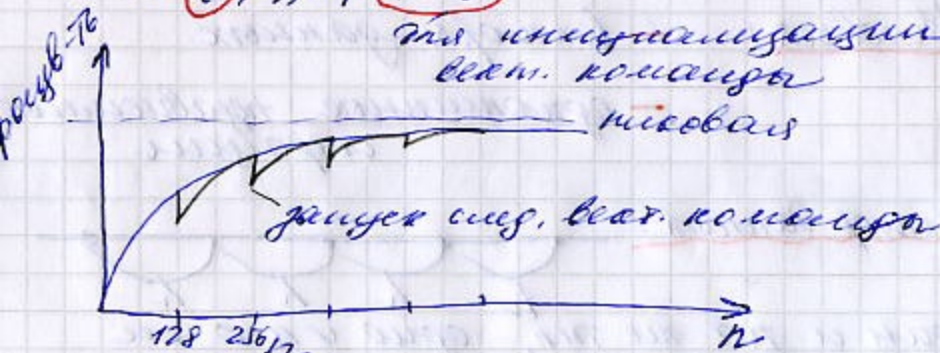 для инициализации
вект. команды
пиковая
запуск след. вект. команды
128 256 n